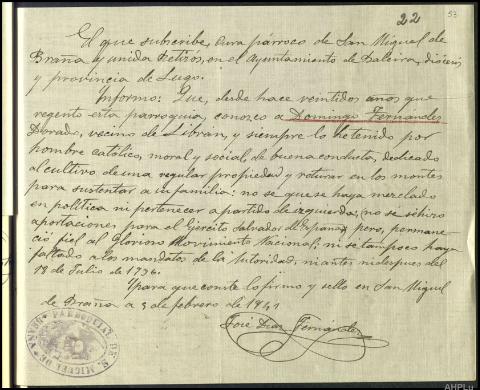 22
53
El que subscribe, cura párroco de San Miguel de
Braña y unida Retizós, en el Ayuntamiento de Baleira, diócesis
y provincia de Lugo.
Informo: Que, desde hace veintidos años que
regento esta parroquia, conozco a Domingo Fernandez
Dorado, vecino de Libran, y siempre lo he tenido por
hombre católico, moral y social, de buena conducta, dedicado
al cultivo de una regular propiedad y roturar en los montes
para sustentar a su familia: no se que se haya mezclado
en política ni pertenecer a partido de izquierda; no se si hizo
aportaciones para el Ejército Salvador de España; pero, permane-
ció fiel al Glorioso Movimiento Nacional; ni se tampoco haya
faltado a los mandatos de la Autoridad, ni antes ni despues del
18 de Julio de 1936.
Y para que conste lo firmo y sello en San Miguel
de Braña a 3 de febrero de 1941
José Diaz Fernández
PARROQUIA DE S. MIGUEL DE BRAÑA
AHPLu